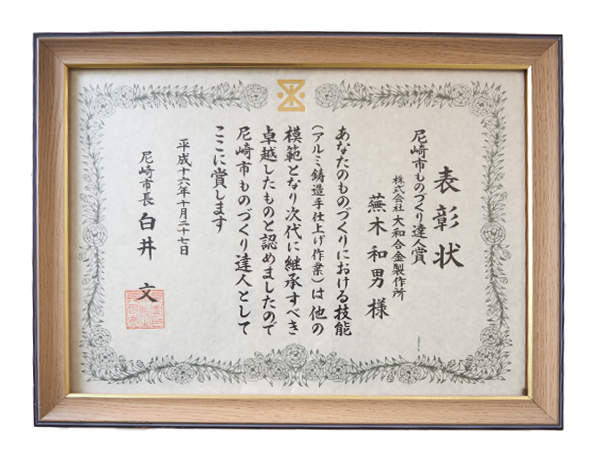 表彰状
尼崎市ものづくり達人賞
株式会社大和合金製作所
蕪木和男様
あなたのものづくりにおける技能
（アルミ鋳造手仕上げ作業）は他の
模範となり次代に継承すべき
卓越したものと認めましたので
尼崎市ものづくり達人として
ここに賞します
平成十六年十月二十七日
尼崎市長 白井 文